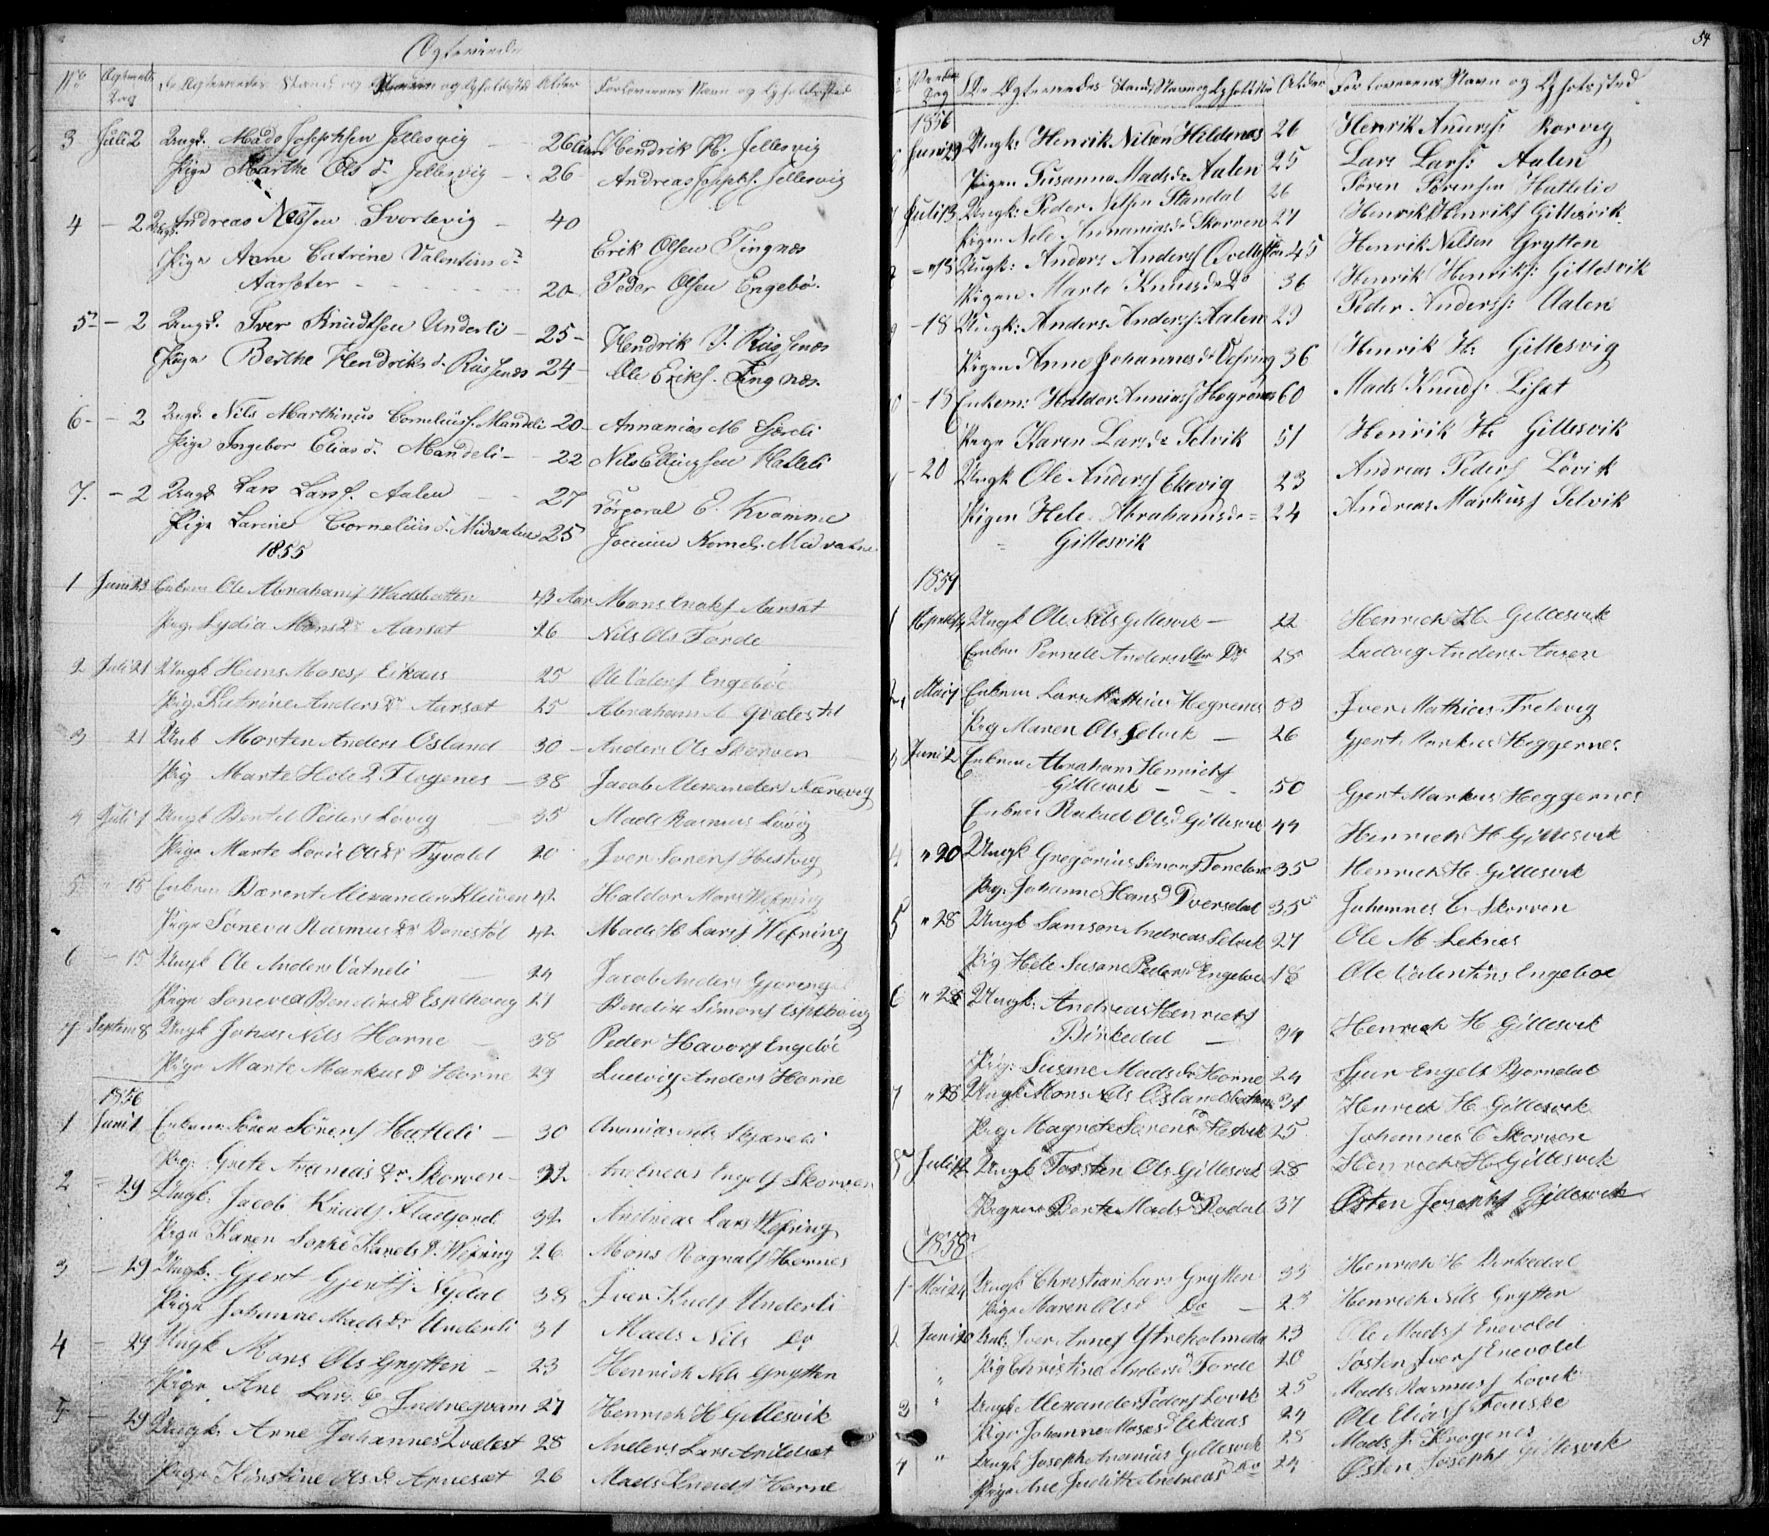 Ægteviede
No Ægtevielses Dag De Ægteviedes Stand og Navn og Opholdssted Alder Forloverens Navn og Opholdssted
3 Juli 2 Ungk. Mads Josephsen Jellesvig 26 Aar Hendrik H. Jellesvig
Pige Marthe Ols d. Jellesvig 26 Andreas Josephs. Jellesvig
4 - 2 Ungk. Andreas Nilsen Svortevig 40
Pige Anne Catrine Valentins d. Erik Olsen Tingnæs
Aarseter 20 Peder Olsen Engebö.
5 - 2 Ungk. Iver Knudtsen Underli 25 Hendrik J. Risesnæs
Pige Berthe Hendriks d. Risesnæs 24 Ole Eriks. Tingnæs
6 - 2 Ungk. Nils Marthinus Cornelius. Mandeli 20 Annanias M.
Pige Ingebor Elias d. Mandeli 22 Nils Ellingsen Hatleli
7. - 2 Ungk. Lars Lars. Aalen 27 Corporal E. Kvamme
Pige Larine Cornelius d. Midvatne 25 Kornels. Midvatne
1855
1 Juni 23 Enkem Ole Abrahams Wadsbotten 43 Aar Mons Enoks Aarsæt
Pig. Lydia Mons Dr. Aarsæt 26 Nils Ols Förde
2 Juli 21 Ungk Hans Moses Eikaas 25 Ole Valent Engeböe
Pig. Katrine Anders Dr. Aarsæt 25 Abraham A. Qvalestel
3 21 Unk Morten Anders Osland 30 Anders Ols Skorven
Pig. Marte Hole D. Flogenes 38 Jacob Alexanders Nærevig
4 Juli 1 Ungk Bertel Peders Lövig 35 Mads Rasmus Lövig
Pige Marte Lovis Ols Dr Tyvold 20 Iver Sörens Hestvig
5 " 15 Enkem Bærent Alexanders Kleiven 42 Haldor Mons Wefring
Pige Söneva Rasmus Dr Bonestöl 42 Mads H Lars Wefring
6 - 15 Ungk Ole Anders Vatneli 24 Jacob Anders
Pige Soneva Bendix D Espehoug 21 Bendix Simons Espehoug
7 Septem 8 Ungk Johans Nils Horne 38 Peder Havors Engeböe
Pige Marte Markus D Horne 29 Ludvig Anders Horne
1856
1 Juni 1 Enkem Sören Sörens Hatleli 30 Ananias Nils
Pig. Grete Ananias Dr. Skorven 32 Andreas Engels Skorven
2 - 29 Ungk. Jacob Knuds 32 Andreas Lars Wefring
Pige Karen Sophie Karels D. Wefring 26 Mons Ragnals Hornes
3 - 29 Ungk. Gjert Gjerts Nydal 38 Iver Knuds Underli
Pige Johanne Mads Dr Underli 31 Mads Nils Do
4 - 29 Ungk Mons Ols Grytten 23 Henrich Nils Grytten
Pige Ane Lars D. 27 Henrich H Gillesvik
5 - 29 Ungk. Arne Johannes 28 Anders Lars
Pige Kirstine Ols D. Arnesæt 26 Mads Knuds Horne
54
Dag De Ægteviedes Stand Navn og Opholdsted Alder Forloverens Navn og Opholdssted
1856
Juni 29 Ungk: Henrik Nilsen Hildenes 26 Henrik Anders: Rorvig
Pigen Susanna Mads Dr Aalen 25 Lars Lars: Aalen
Juli 13 Ungk: Peder Nilsen Standal 26 Sören Sörensen Hatlelie
Pigen Nele Annanias Dr Skorven 27 Henrik Henriks Gillesvik
- 13 Ungk: Anders Anders 45 Henrik Nilsen Grytten
Pigen Marte Knuds Dr Do 36 Henrik Henriks: Gillesvik
- 18 Ungk: Anders Anders: Aalen 29 Peder Anders: Aalen
Pigen Anne Johannes Dr Vefring 36 Henrik H: Gillesvig
- 15 Enkem: Haldor Annias Hegrenes 60 Mads Knuds:
Pige Karen Lars Dr Selvik 51 Henrik H: Gillesvik
- 20 Ungk Ole Anders Ekevig 23 Andreas Peders Lövik
Pigen Hele Abrahams Dr 24 Andreas Markus Selvik
Gillesvik
1857
1 April Ungk Ole Nils Gillesvik 22 Henrich H. Gillesvik
Enken Pernele Anders Dr Do 28 Ludvig Anders Aasen
2 Mai Enkem Lars Mathias Hegrenes 53 Iver Mathias Fretevig
Pig Maren Ols Selvik 26 Gjert Markus Heggernes
3 Juni Enkem Abraham Henrichs
Gillesvik 50 Gjert Markus Heggernes
Enken Rakael Ols d Gillesvik 44 Henrich H Gillesvik
4 " 20 Ungk Gregorius Simons 35 Henrich H. Gillesvik
Pig. Johanne Hans d Tversdal 35 Johannes C. Skorven
5 " 28 Ungk Samson Andreas Selvik 27 Ole M Leknes
Pig Hele Susane Peders d Engeboe 18 Ole Valentins Engeboe
6 " 28 Ungk: Andreas Henrichs
Birkedal 34 Henrich H Gillesvik
Pig: Susane Mads Dr Horne 24 Sjur Engels Bjornedal
7 " 28 Ungk Mons Nils Oslandsbotten 31 Henrich H. Gillesvik
Pig Magrete Sörens d Hestvik 25 Johannes C Skorven
8 Juli 12 Ungk Torsten Ols Gillesvik 28 Henrich H Gillesvik
Pigen Berte Mads D Rodal 37 Østen Josephs Gillesvik
1858
1 Mai 24 Ungk Christian Lars Grytten 35 Henrich H Birkedal
Pige Maren Ols d Do 23 Henrich Nils Grytten
2 Juni 20 Unk. Iver Arnes Ytreholmeda 23 Ole Mads Enevold
Pig Christine Anders d Förde 20 Tosten Ivers Enevold
3 " Ungk Alexander Peders Lovik 25 Mads Rasmus Lovik
Pige Johanne Moses d Eikaas 24 Ole Elias Fauske
4 " Ungk Joseph Ananias Gillesvik 28 Mads J. Krogenes
Pige Ane Judith Andreas D Do 24 Østen Josephs Gillesvik